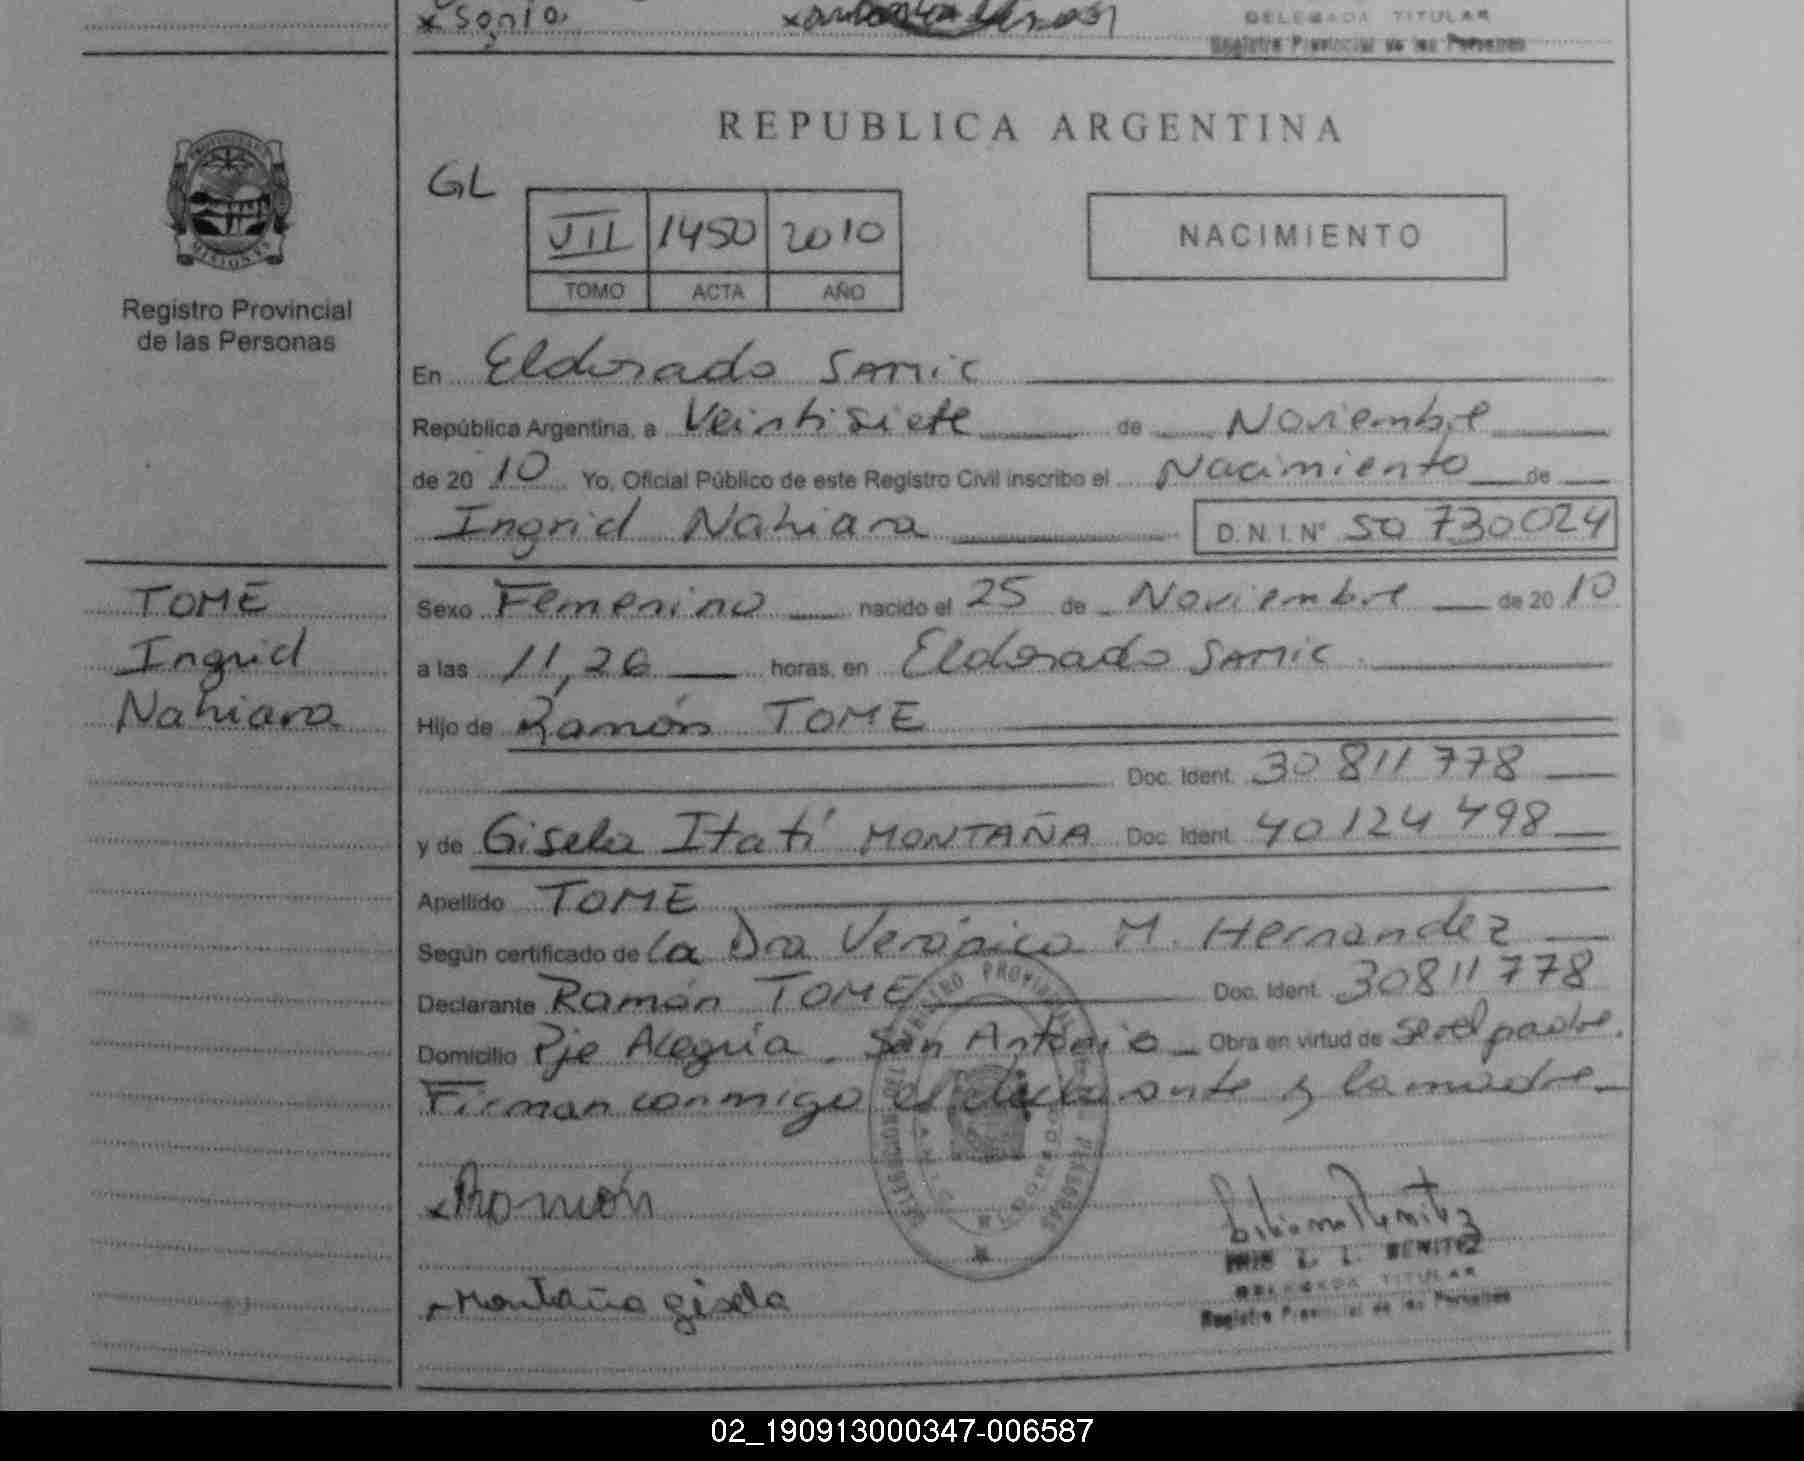 x Sonia
DELEGADA TITULAR
Registro Provincial de las Personas
PROVINCIA DE
MISIONES
Registro Provincial
de las Personas
REPUBLICA ARGENTINA
GL
VII 1450 2010
TOMO ACTA AÑO
NACIMIENTO
En Eldorado SAMIC
República Argentina, a Veintisiete de Noviembre
de 20 10 Yo, Oficial Público de este Registro Civil inscribo el Nacimiento de
Ingrid Nahiara D.N.I.N° 50 730024
TOME
Ingrid
Nahiara
Sexo Femenino nacido el 25 de Noviembre de 20 10
a las 11,26 horas, en Eldorado SAMIC.
Hijo de Ramón TOME
Doc. Ident. 30 811 778
y de Gisela Itatí MONTAÑA Doc. Ident. 40 124 498
Apellido TOME
Según certificado de la Dra Verónica M. Hernandez
Declarante Ramón TOME Doc. Ident. 30811778
Domicilio Pje Alegria. San Antonio Obra en virtud de ser el padre.
Firman conmigo el declarante y la madre
x Ramón
Liliana Benitez
L. L. BENITEZ
DELEGADA TITULAR
Registro Provincial de las Personas
x Montaña gisela
02_190913000347-006587